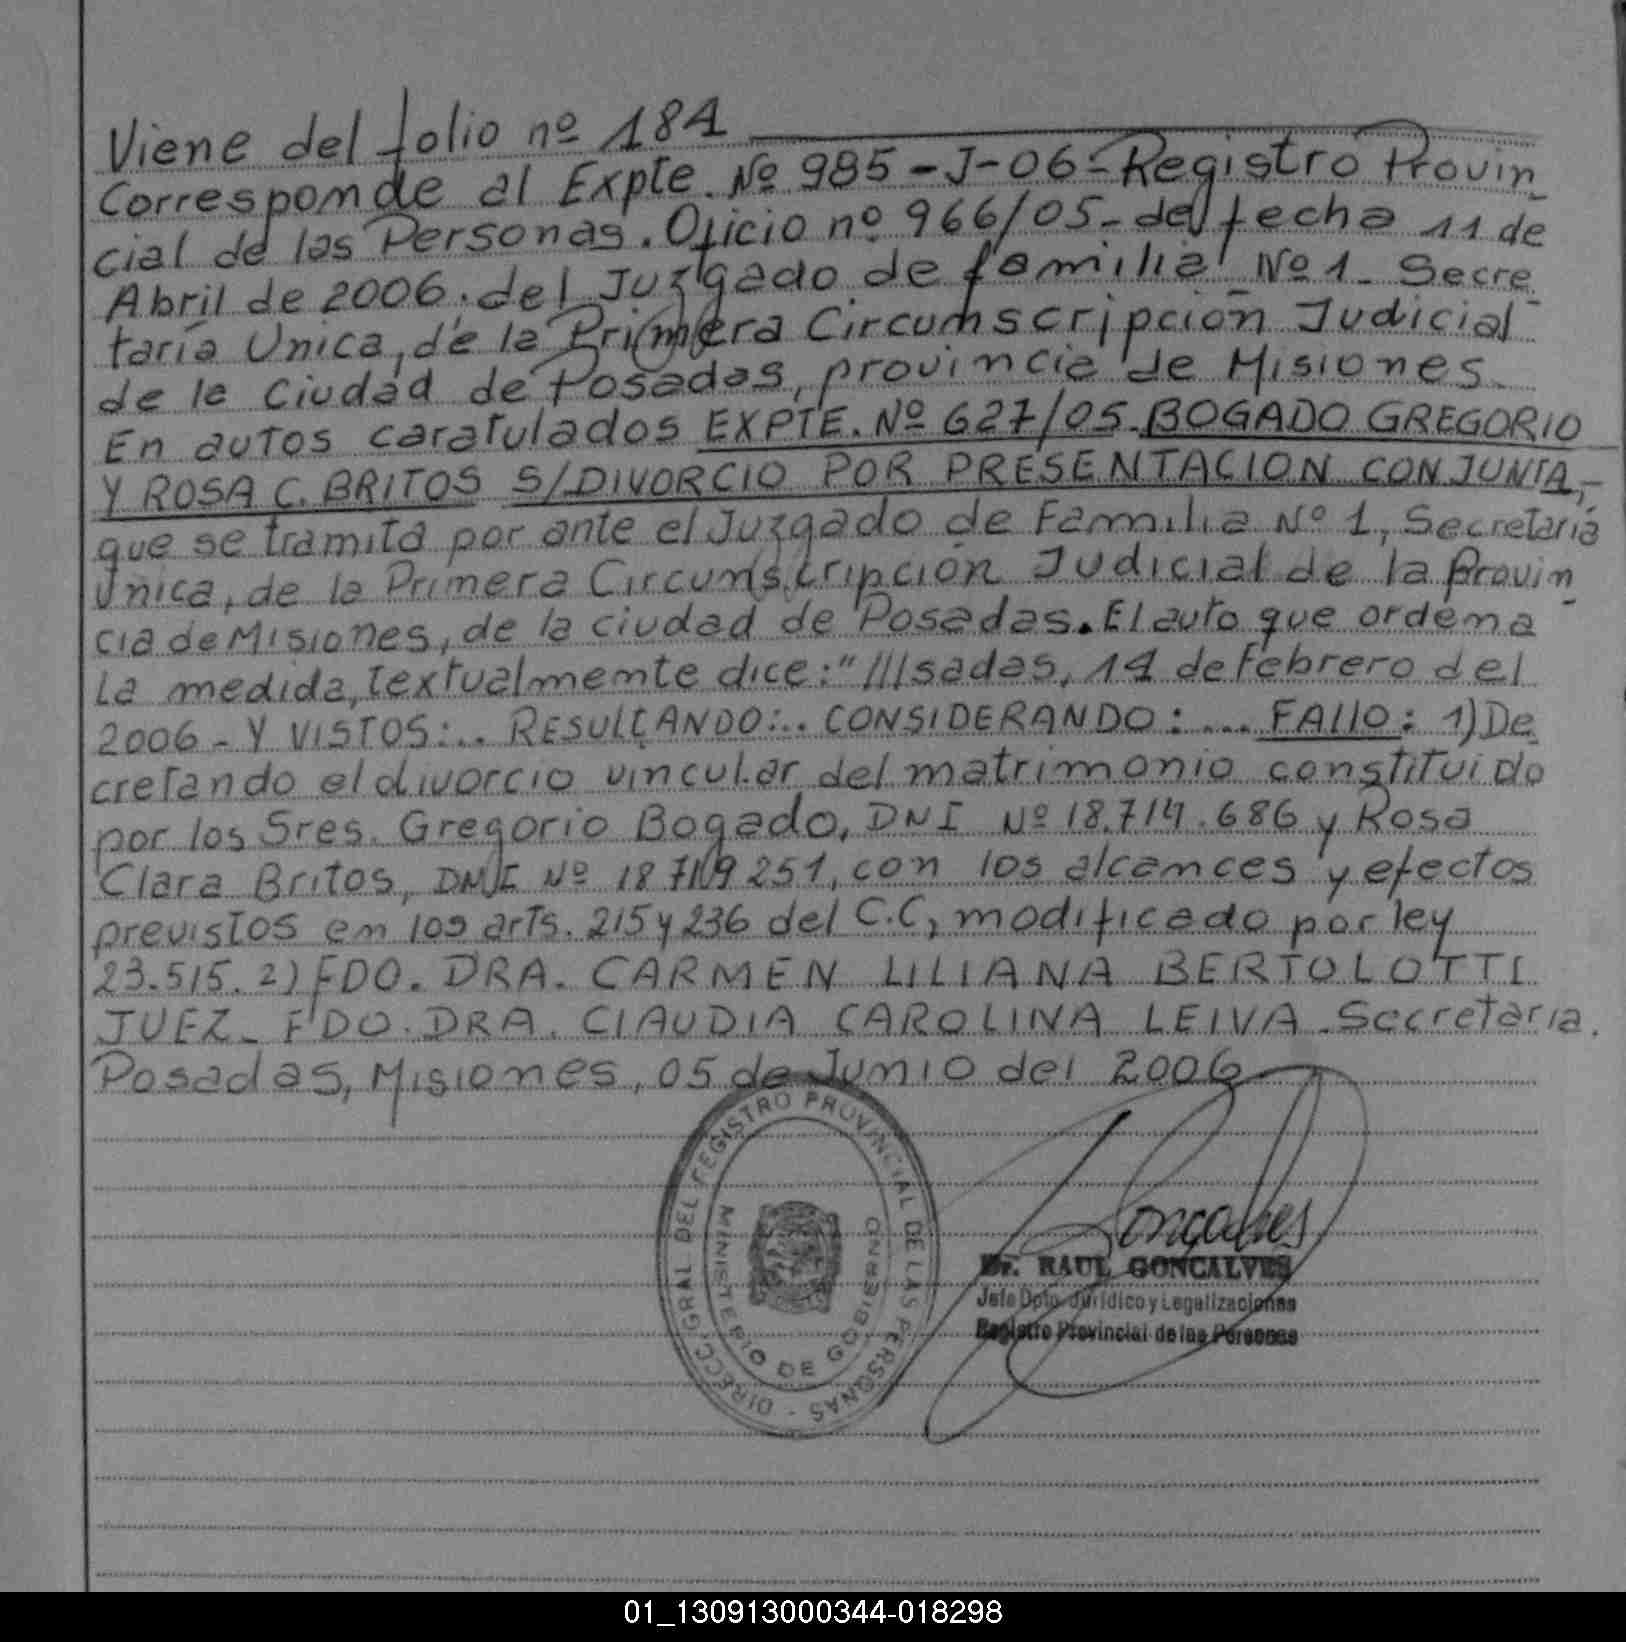 Viene del folio nº 184
Corresponde al Expte. Nº 985-J-06-Registro Provin
cial de las Personas. Oficio nº 966/05- de fecha 11 de
Abril de 2006. del Juzgado de familia Nº 1- Secre
taría Unica, de la Primera Circumscripción Judicial
de la Ciudad de Posadas, provincia de Misiones.
En autos caratulados EXPTE. Nº 627/05-BOGADO GREGORIO
Y ROSA C. BRITOS S/DIVORCIO POR PRESENTACION CONJUNTA,-
que se tramita por ante el Juzgado de Familia Nº 1, Secretaría
Unica, de la Primera Circumscripción Judicial de la Provin
cia de Misiones, de la ciudad de Posadas. El auto que ordena
La medida, textualmente dice: "///sadas, 14 de Febrero del
2006 - Y VISTOS:.. RESULTANDO:.. CONSIDERANDO:... FALLO: 1) De
cretando el divorcio vincular del matrimonio constituido
por los Sres. Gregorio Bogado, DNI Nº 18.714.686 y Rosa
Clara Britos, DNI Nº 18 719 251, con los alcances y efectos
previstos en los arts. 215 y 236 del C.C, modificado por ley
23.515. 2) FDO. DRA. CARMEN LILIANA BERTOLOTTI
JUEZ- FDO. DRA. CLAUDIA CAROLINA LEIVA-Secretaria.
Posadas, Misiones, 05 de Junio del 2006
DIRECC. GRAL DEL REGISTRO PROVINCIAL DE LAS PERSONAS -
MINISTERIO DE GOBIERNO
Goncalves
Dr. RAUL GONCALVES
Jefe Dpto. Jurídico y Legalizaciones
Registro Provincial de las Personas
01_130913000344-018298